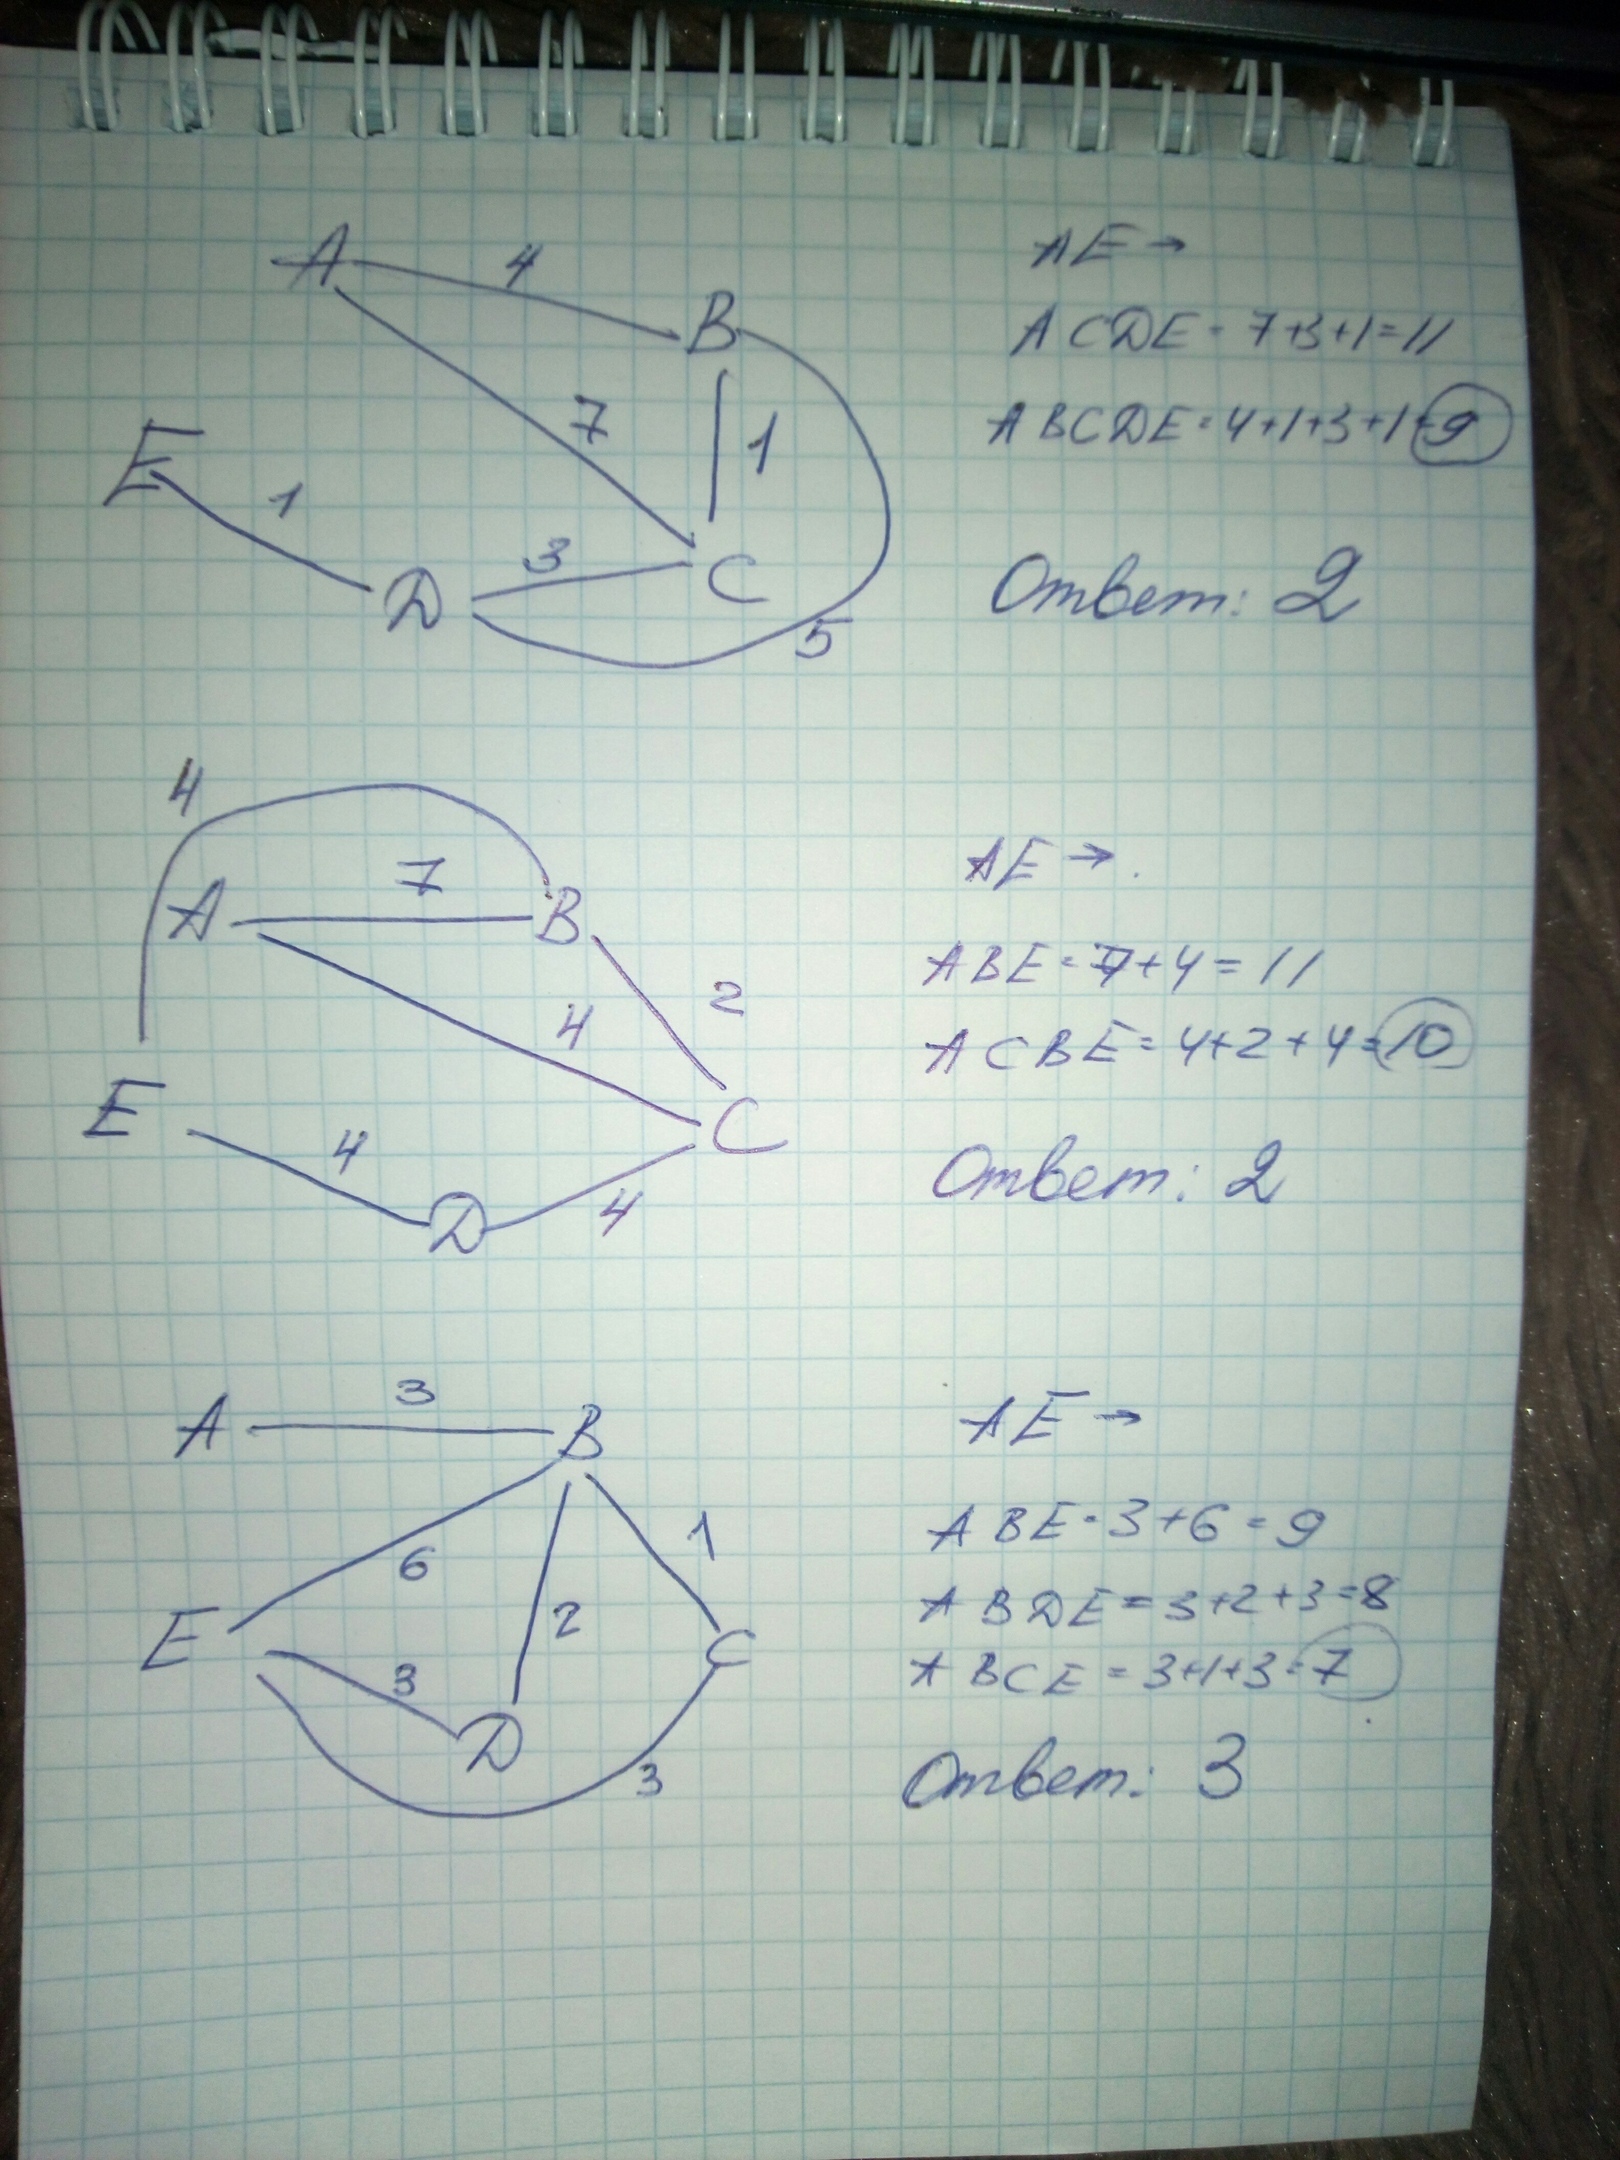 A 4 B
7 1
E 1 D 3 C
5
AE →
ACDE = 7+3+1=11
ABCDE = 4+1+3+1=9
Ответ: 2
4
A 7 B
4 2
E 4 D 4 C
AE → .
ABE = 7+4 = 11
ACBE = 4+2+4=10
Ответ: 2
A 3 B
6 2 1
E 3 D C
3
AE →
ABE = 3+6 = 9
ABDE = 3+2+3=8
ABCE = 3+1+3=7
Ответ: 3